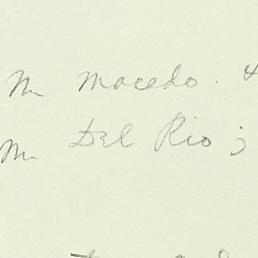 Mr Macedo. 4
Mr. Del Rio;